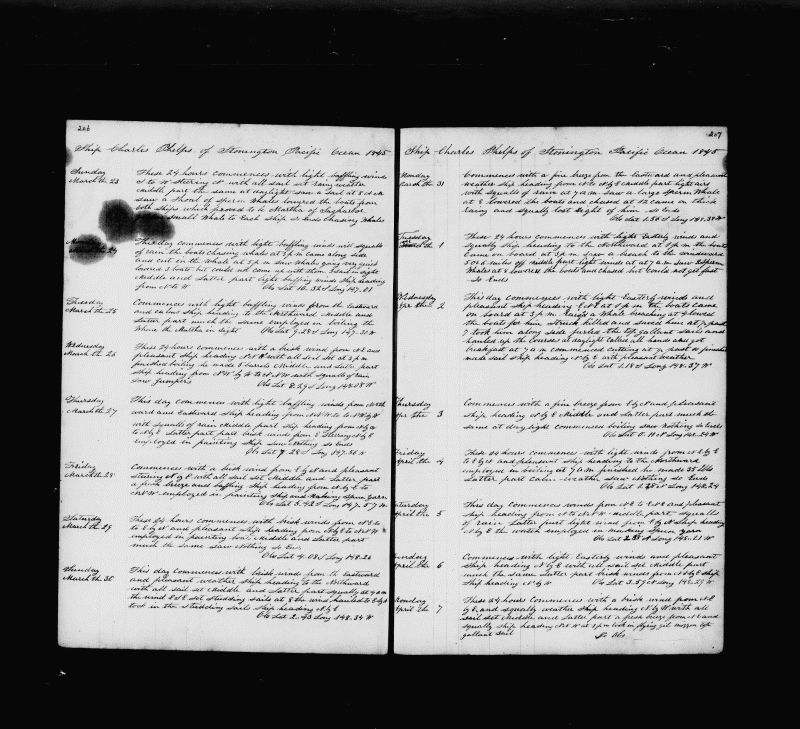 206
Ship Charles Phelps of Stonington Pacific Ocean 1845
Sunday
March the 23
These 24 hours commences with light baffling winds
S to W Steering N with all sail set rainy weather
middle part the same at daylight saw a sail at 8 A M
saw a Shoal of Sperm Whales lowered the boats from
both Ships which proved to be Martha of Sagharbor
Small Whale to Each Ship so Ends Chasing Whales
March the 24
This day commences with light baffling winds and squalls
of rain the boats chasing whales at 3 p m came along side
and cut in the whale at 5 p m saw Whales going very quick
lowered 3 boats but could not come up with them
Middle and Latter part light baffling winds Ship heading
from N to W
Obs Lat 10.32 S Long 147.01
Tuesday
March the 25
Commences with light baffling winds from the Eastward
and calms Ship heading to the Northward Middle and
Latter part much the same employed in boiling the
Whale the Martha in Sight
Obs Lat 9.28 S Long 147.31 W
Wednesday
March the 26
These 24 hours commences with a brisk wind from N E and
pleasant Ship heading N N W with all Sail Set at 2 p m
finished boiling he made 8 barrels Middle and Latter part
Ship heading from N W by W to N N W with squalls of rain
Saw Jumpers
Obs Lat 8.29 S Long 148.08 W
Thursday
March the 27
This day commences with light baffling winds from North
ward and Eastward Ship heading from N N W to N W by W
with squalls of rain Middle part Ship heading from N by W
to N by E Latter part brisk winds from E Steering N by E
employed in painting Ship saw Nothing so Ends
Obs Lat 7.28 S Long 147.56 W
Friday
March the 28
Commences with a brisk wind from E by N and pleasant
Steering N by E with all sail set Middle and Latter part
a fresh breeze and baffling Ship heading from N by E to
N N W employed in painting Ship and making Spun yarn
Obs Lat 5.42 S Long 147.57 W
Saturday
March the 29
These 24 hours commences with brisk winds from N E to
E by N and pleasant Ship heading from N by E to N N W
employed in painting boat Middle and Latter part
much the same saw Nothing so Ends
Obs Lat 4.08 S Long 148.26
Sunday
March the 30
This day commences with brisk winds from the Eastward
and pleasant weather Ship heading to the Northward
with all sail set Middle and Latter part squally at 4 am
the wind E S E set Studding sails at 8 the wind hauled to E by N
took in the studding sails Ship heading N by E
Obs Lat 2.43 Long 148.34 W
207
Ship Charles Phelps of Stonington Pacific Ocean 1845
Monday
March the 31
Commences with a fine breeze from the Eastward and pleasant
weather Ship heading from N to N by E middle part light airs
with squalls of rain at 7 a m saw a large Sperm Whale
at 8 lowered the boats and chased at 12 came on thick
rainy and squally lost sight of him so Ends
Obs Lat 1.58 S Long 149.38 W
Tuesday
the 1
These 24 hours commences with light Easterly winds and
squally Ship heading to the Northward at 1 p m the boats
came on board at 3 p m saw a breach to the windward
5 or 6 miles off middle part light winds at at 7 a m saw 2 Sperm
Whales at 8 lowered the boats and chased but could not get fast
So Ends
Wednesday
Apr the 2
This day commences with light Easterly winds and
pleasant Ship heading E N E at 5 p m the boats came
on board at 3 p m raised a Whale breaching at 4 lowered
the boats for him Struck killed and saved him at ½ past
7 took him along side furled the top gallant sails and
hauled up the Courses at daylight called all hands and got
breakfast at 7 a m commenced cutting at ½ past 10 finished
made sail Ship heading N by E with pleasant weather
Obs Lat 1.18 S Long 148.37 W
Thursday
Apr the 3
Commences with a fine breeze from E by N and pleasant
Ship heading N by E Middle and Latter part much the
same at day light commenced boiling saw Nothing so Ends
Obs Lat 0.11 N Long 148.24 W
Friday
April the 4
These 24 hours commences with light winds from N by E
to E by N and pleasant Ship heading to the Northward
employed in boiling at 7 a m finished he made 35 bbls
Latter part calm weather saw Nothing so Ends
Obs Lat 1.28 Long 148.24
Saturday
April the 5
This day commences with light winds from N E to E N E and pleasant
Ship heading from N to N N W middle part squalls
of rain Latter part light wind from E by N Ship heading
N by E the watch employed in making Spun yarn
Obs Lat 2.05 N Long 148.21 W
Sunday
April the 6
Commences with light Easterly winds and pleasant
Ship heading N by E with all sail set Middle part
much the same Latter part brisk winds from N E by E Ship
Ship heading N by W
Obs Lat 2.57 N Long 148.39 W
Monday
April the 7
These 24 hours commences with a brisk wind from N E
by E and squally weather Ship heading N by W with all
sail set Middle and Latter part a fresh breeze from N E and
squally Ship heading N N W at 8 p m took in flying jib mizzen top
gallant Sail
No Obs